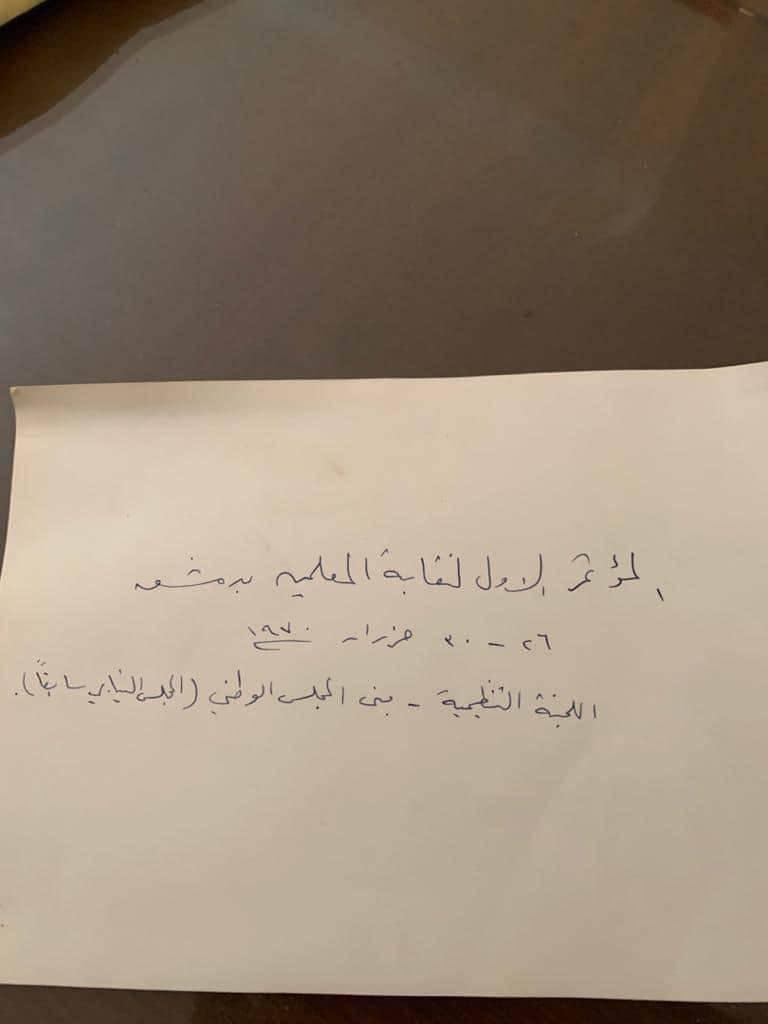 المؤتمر الاول لنقابة المعلمين بدمشق
٢٦ - ٣٠ حزيران ١٩٧٠
اللجنة التنظيمية - بنى المجلس الوطني (المجلس النيابي سابقاً).